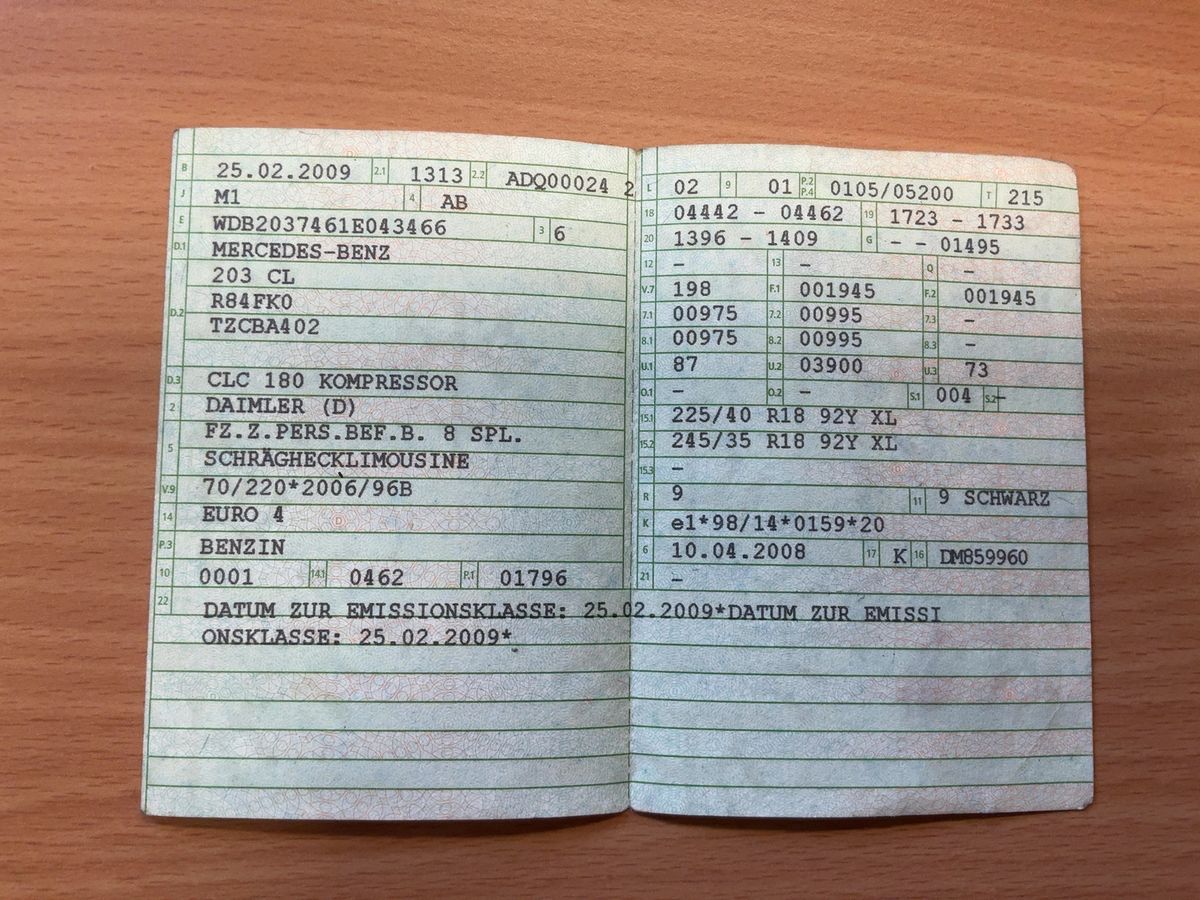 B 25.02.2009 2.1 1313 2.2 ADQ00024 2
J M1 4 AB
E WDB2037461E043466 3 6
D.1 MERCEDES-BENZ
203 CL
D.2 R84FK0
TZCBA402
D.3 CLC 180 KOMPRESSOR
2 DAIMLER (D)
5 FZ.Z.PERS.BEF.B. 8 SPL.
SCHRÄGHECKLIMOUSINE
V.9 70/220*2006/96B
14 EURO 4
P.3 BENZIN
10 0001 14.1 0462 P.1 01796
L 02 9 01 P.2 P.4 0105/05200 T 215
18 04442 - 04462 19 1723 - 1733
20 1396 - 1409 G - - 01495
12 - 13 - Q -
V.7 198 F.1 001945 F.2 001945
7.1 00975 7.2 00995 7.3 -
8.1 00975 8.2 00995 8.3 -
U.1 87 U.2 03900 U.3 73
O.1 - O.2 - S.1 004 S.2 -
15.1 225/40 R18 92Y XL
15.2 245/35 R18 92Y XL
15.3 -
R 9 11 9 SCHWARZ
K e1*98/14*0159*20
6 10.04.2008 17 K 16 DM859960
21 -
22 DATUM ZUR EMISSIONSKLASSE: 25.02.2009*DATUM ZUR EMISSI
ONSKLASSE: 25.02.2009*